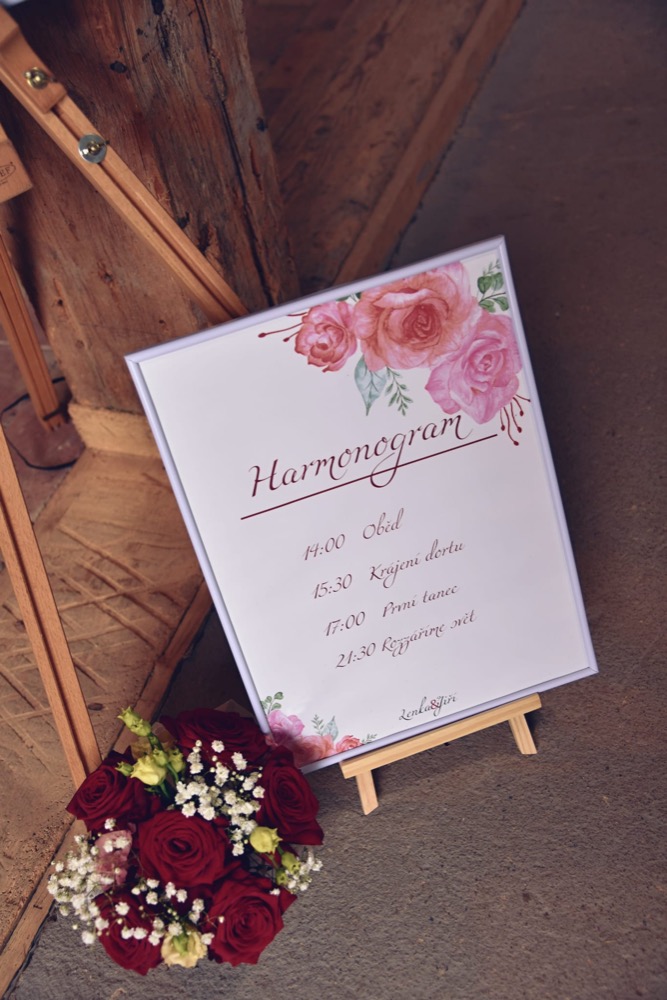 Harmonogram
14:00 Oběd
15:30 Krájení dortu
17:00 První tanec
21:30 Rozzáříme svět
Lenka&Jiří